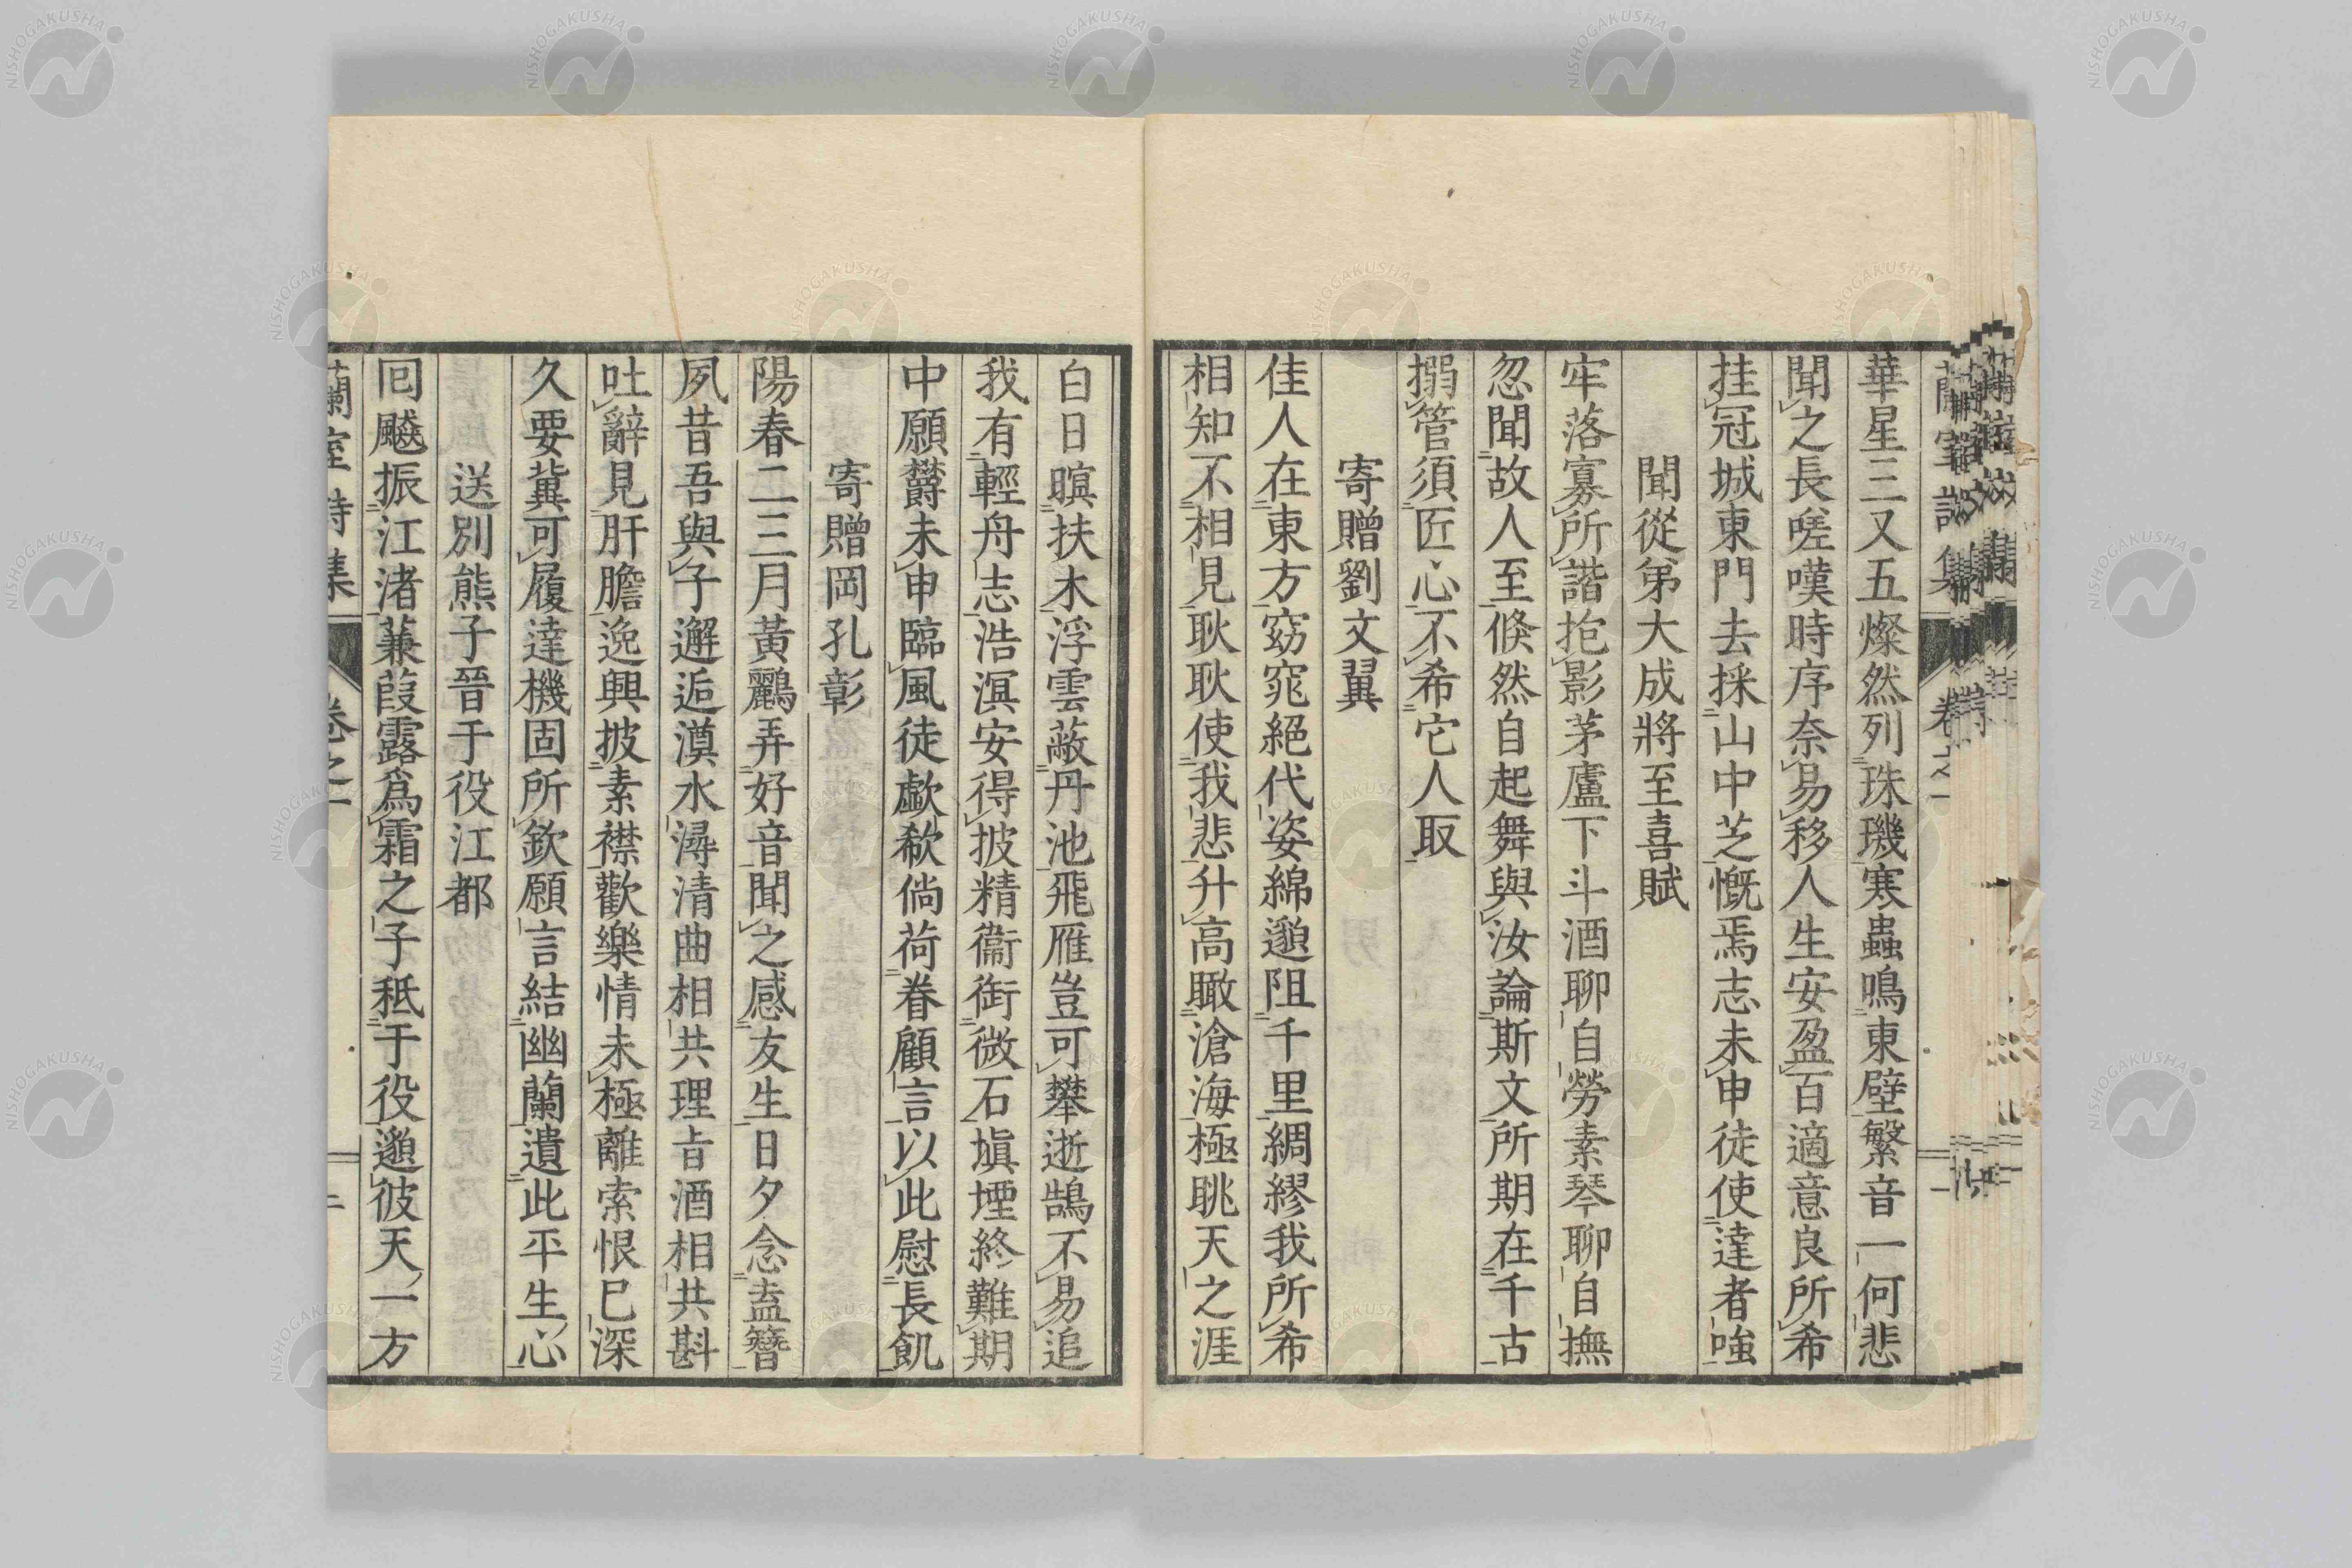 華星三又五燦然列珠璣寒蟲鳴東壁繁音一何悲
聞之長嗟嘆時序奈易移人生安盈百適意良所希
挂冠城東門去採山中芝慨焉志未申徒使達者嗤
聞從弟大成將至喜賦
牢落寡所諧抱影茅廬下斗酒聊自勞素琴聊自撫
忽聞故人至倏然自起舞與汝論斯文所期在千古
搦管須匠心不希它人取
寄贈劉文翼
佳人在東方窈窕絕代姿綿邈阻千里綢繆我所希
相知不相見耿耿使我悲升高瞰滄海極眺天之涯
白日暝扶木浮雲蔽丹池飛雁豈可攀逝鵠不易追
我有輕舟志浩溟安得披精衞銜微石塡堙終難期
中願欝未申臨風徒歔欷倘荷眷顧言以此慰長飢
寄贈岡孔彰
陽春二三月黃鸝弄好音聞之感友生日夕念盍簪
夙昔吾與子邂逅漢水潯清曲相共理旨酒相共斟
吐辭見肝膽逸興披素襟歡樂情未極離索恨已深
久要冀可履達機固所欽願言結幽蘭遺此平生心
送別熊子晉于役江都
囘飈振江渚蒹葭露爲霜之子秪于役邈彼天一方
蘭室詩集
卷之一
二